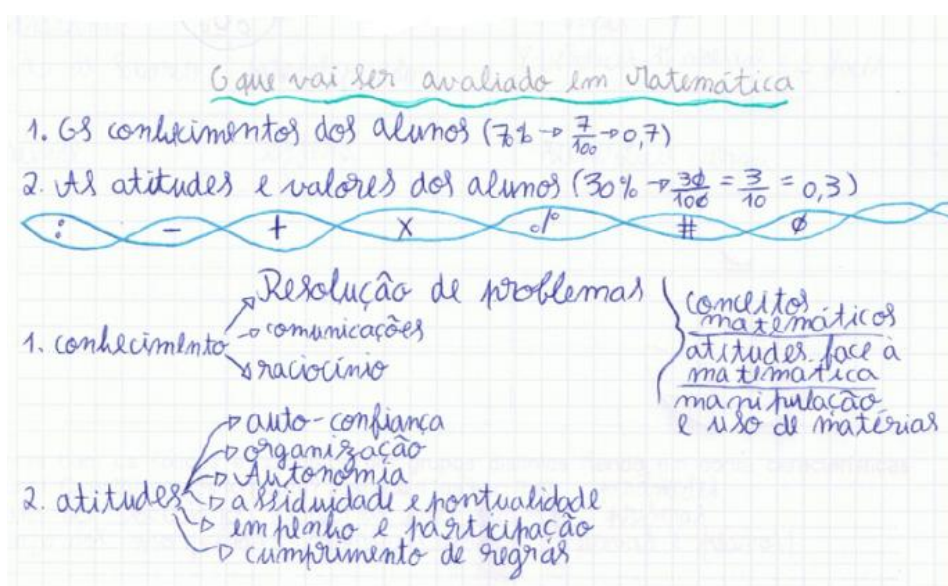 O que vai ser avaliado em Matemática
1. Os conhecimentos dos alunos (7% → 7/100 → 0,7)
2. As atitudes e valores dos alunos (30% → 30/100 = 3/10 = 0,3)
: - + x % # ø
1. conhecimento
Resolução de problemas
comunicações
raciocínio
conceitos
matemáticos
atitudes face à
matemática
manipulação
e uso de matérias
2. atitudes
auto-confiança
organização
Autonomia
assiduidade e pontualidade
empenho e participação
cumprimento de regras